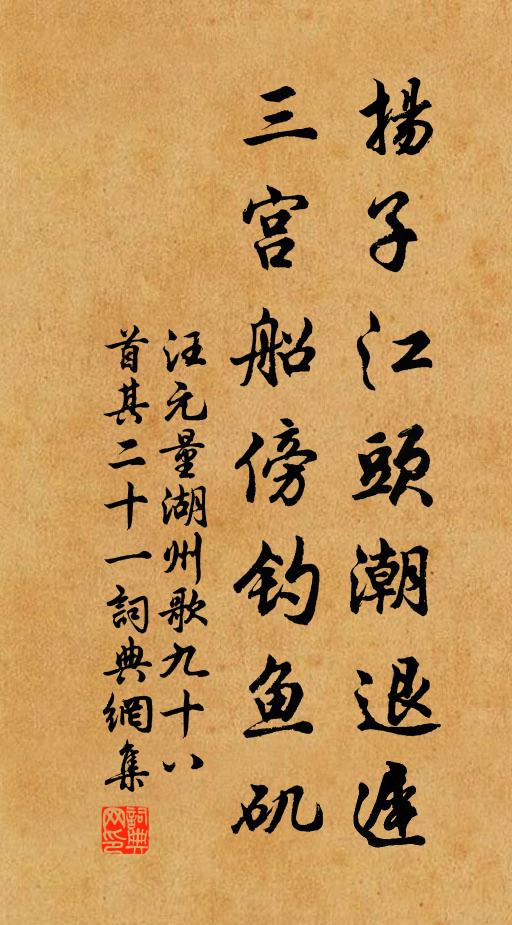 揚子江頭潮退遲
三宫船傍钓鱼矶
汪元量湖州歌九十八
首其二十一詞典網集
詞典
网印